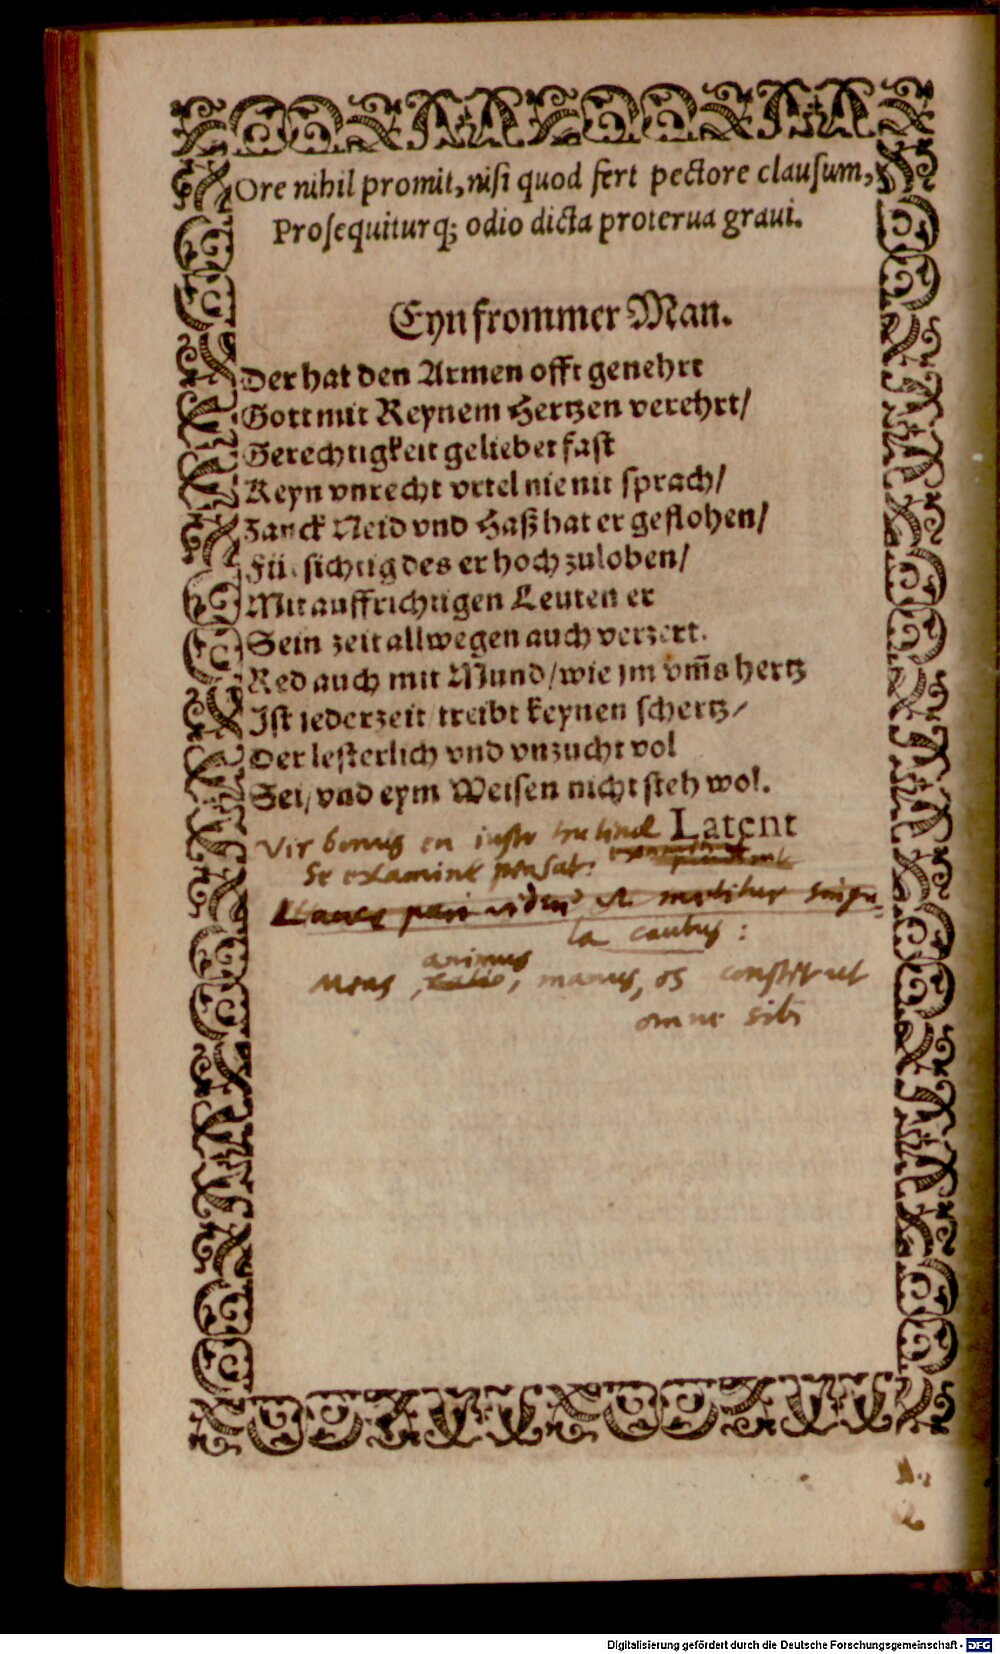 Ore nihil promit, nisi quod fert pectore clausum,
Prosequiturq; odio dicta proterua graui.
Eyn frommer Man.
Der hat den Armen offt genehrt
Gott mit Reynem Hertzen verehrt/
Gerechtigkeit geliebet fast
Keyn vnrecht vrtel nie nit sprach/
Zanck Neid vnd Haß hat er geflohen/
Fürsichtig des er hoch zuloben/
Mit auffrichtigen Leuten er
Sein zeit allwegen auch verzert.
Red auch mit Mund/ wie jm vm̃s hertz
Ist jederzeit/ treibt keynen schertz/
Der lesterlich vnd vnzucht vol
Sei/ vnd eym Weisen nicht steh wol.
Latent
Vir bonus en iusto trutinae
se examine pensat:
Lances pari
la cautus:
animus
Mens, manus, os constet ut
omne sibi
Digitalisierung gefördert durch die Deutsche Forschungsgemeinschaft - DFG